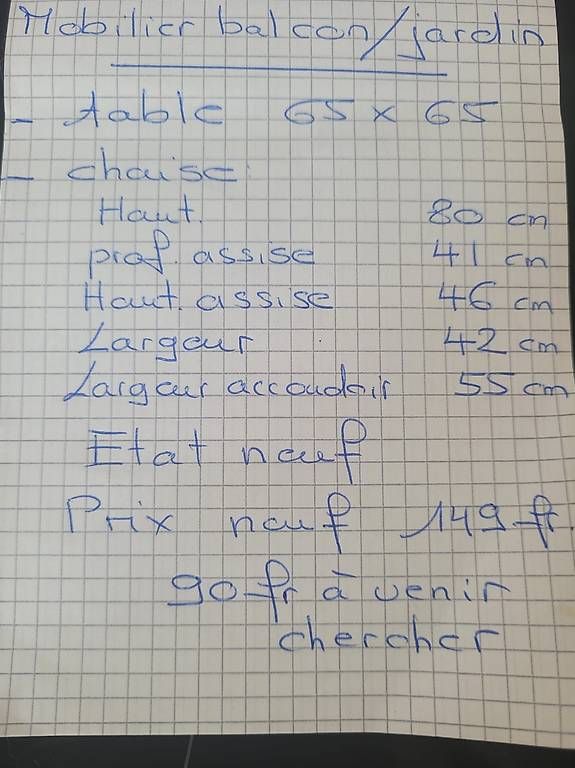 Mobilier balcon/jardin
- table 65 x 65
- chaise:
Haut. 80 cm
prof. assise 41 cm
Haut. assise 46 cm
Largeur 42 cm
Largeur accoudoir 55 cm
Etat neuf
Prix neuf 149 fr.
90 fr à venir
chercher